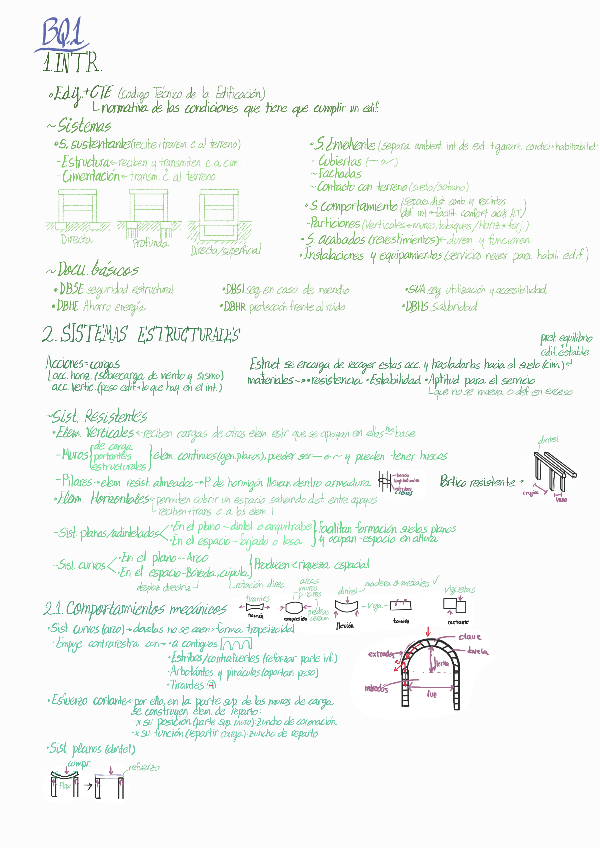 BQ.1
1. INTR.
• Edif. + CTE (Código Técnico de la Edificación)
normativa de las condiciones que tiene que cumplir un edif.
~ Sistemas
• S. sustentante (recibe + transm c. al terreno)
- Estructura → reciben y transmiten c. a cim.
- Cimentación → transm. c. al terreno
Directa
Profunda
Directa/superficial
• S. Envolvente (separa ambient int de ext + garant. condic. habitabilidad
- Cubiertas
- Fachadas
- Contacto con terreno (suelo/sótano)
• S. comportamiento
- Particiones (Verticales = muros, tabiques / Horiz = forj.)
• S. acabados (revestimientos) → duren y funcionen
• Instalaciones y equipamientos (servicios neces para habili edif)
~ Docu. básicos
• DBSE seguridad estructural
• DBSI seg en caso de incendio
• SUA seg utilización y accesibilidad
• DBHE Ahorro energía
• DBHR protección frente al ruido
• DBHS Salubridad
2. SISTEMAS ESTRUCTURALES
equilibrio
edif. estable
Acciones = cargas
acc. horiz. (sobrecarga de viento y sismo)
acc. vertic. (peso edif + lo que hay en el int.)
Estruct se encarga de recoger estas acc. y trasladarlas hacia el suelo (cim.)
materiales → • resistencia • Estabilidad • Aptitud para el servicio
que no se mueva o def en exceso
~ Sist. Resistentes
• Elem. Verticales → reciben cargas de otros elem estr que se apoyan en ellos → base
- Muros
de carga
portantes
estructurales
elem. continuos (gen. planos), pueden ser y pueden tener huecos
- Pilares → elem resist. alineados → P. de hormigón llevan dentro armadura
Pórtico resistente
dintel
crujía
vano
• Elem Horizontales → permiten cubrir un espacio salvando dist entre apoyos
reciben + trans c. a los elem |
- Sist. planos/adintelados
En el plano ~ dintel o arquitrabe
En el espacio ~ forjado o losa
Facilitan formación suelos planos
y ocupan - espacio en altura
- Sist. curvos
En el plano - Arco
En el espacio - Bóveda, cúpula
Producen + riqueza espacial
desplaz directriz
rotación direc
2.1. Comportamientos mecánicos
tirantes
tracción
arcos
muros
compresión
dintel
flexión
madera o metales
viga
torsión
viguetas
cortante
• Sist curvos (arco) → dovelas no se caen = forma trapezoidal
- Empuje contrarresta con → • a contiguos
• Estribos/contrafuertes (reforzar parte inf.)
• Arbotantes y pináculos (aportan peso)
• Tirantes
clave
dovela
extradós
flecha
intradós
luz
• Esfuerzo cortante = por ello, en la parte sup. de los muros de carga
se construyen elem. de reparto:
- x su posición (parte sup. muro): zuncho de coronación
- x su función (repartir carga): zuncho de reparto
• Sist planos (dintel)
compr
refuerzo